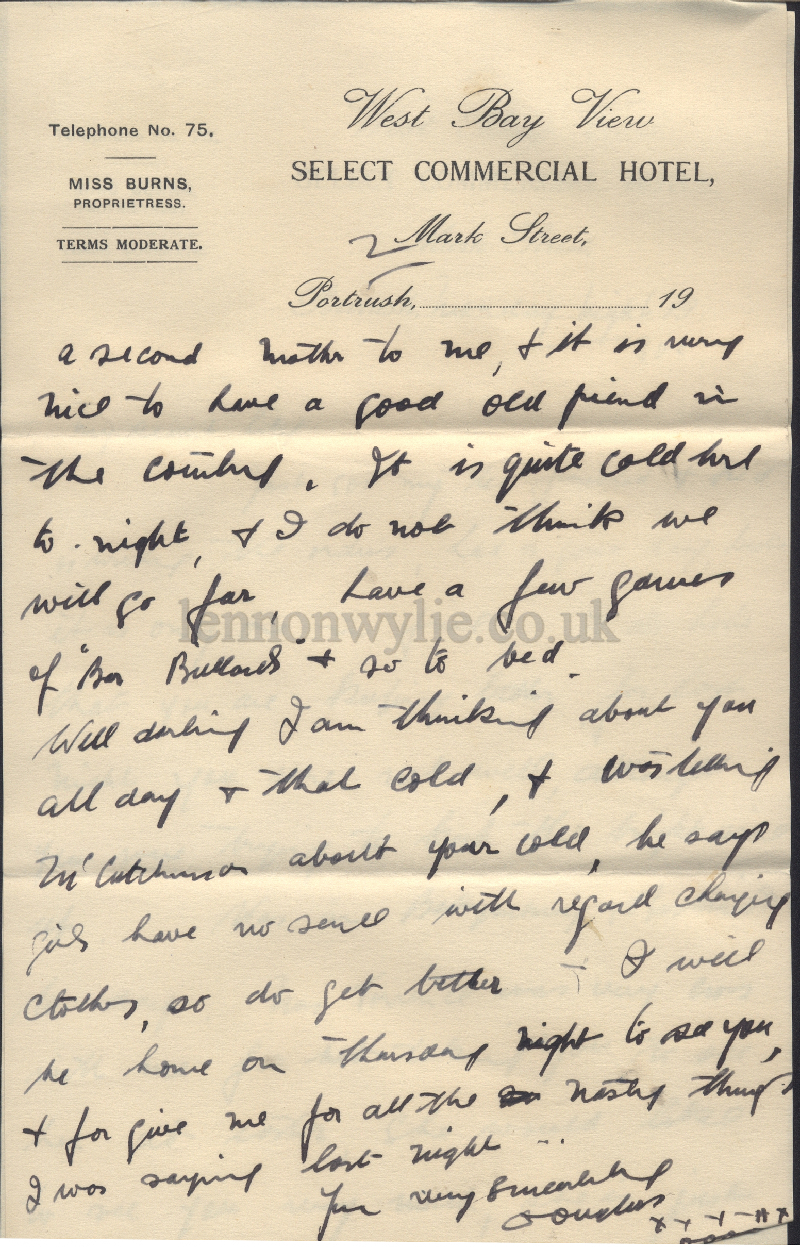 Telephone No. 75.
MISS BURNS,
PROPRIETRESS.
TERMS MODERATE.
West Bay View
SELECT COMMERCIAL HOTEL,
2
Mark Street,
Portrush, 19
a second mother to me, & it is very
nice to have a good old friend in
the country. It is quite cold here
to-night, & I do not think we
will go far, have a few games
of "Bar Billiards" & so to bed.
Well darling I am thinking about you
all day & that cold, & was telling
McCutcheson about your cold, he says
girls have no sense with regard changing
clothes, so do get better & I will
be home on Thursday night to see you,
& forgive me for all the nasty things
I was saying last night ...
Your very sincerely
Douglas x x x - x x
lennonwylie.co.uk